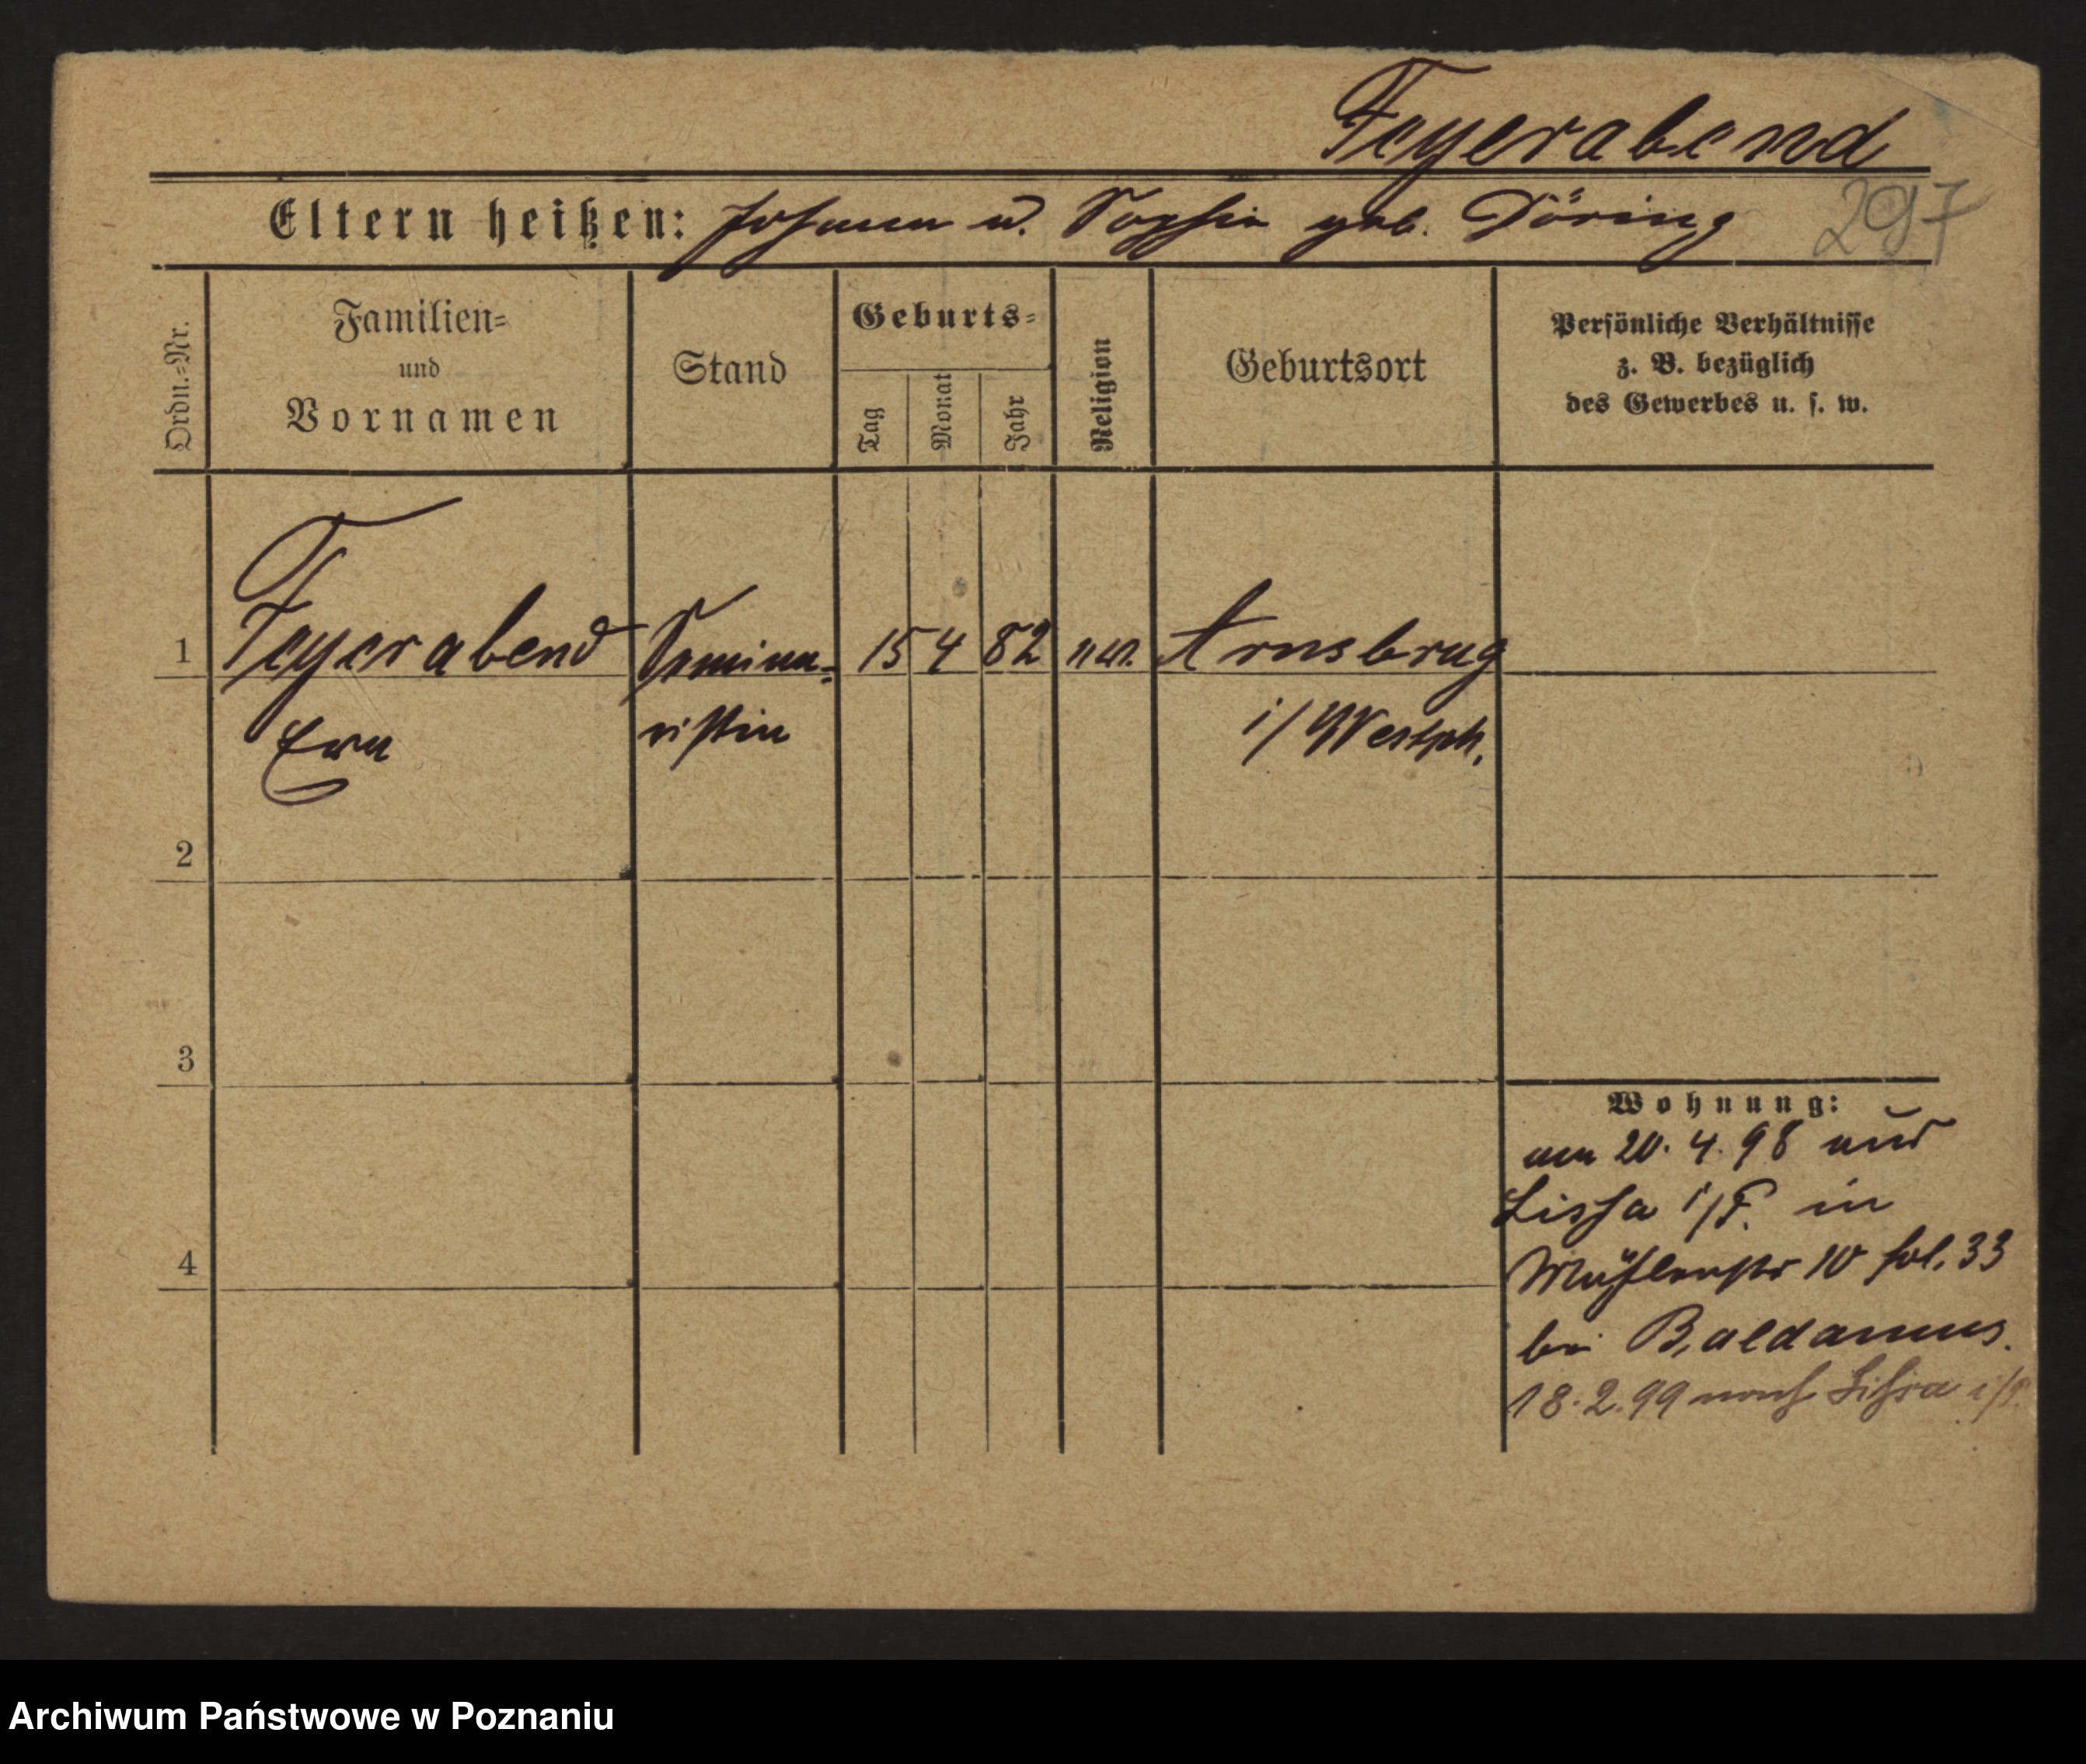 Feyerabend
Eltern heißen: Johann u. Sophie geb. Döring
297
Ordn.=Nr.
Familien=
und
Vornamen
Stand
Geburts=
Tag
Monat
Jahr
Religion
Geburtsort
Persönliche Verhältnisse
z. B. bezüglich
des Gewerbes u. s. w.
1 Feyerabend Semina= 15 4 82 ev. Arnsbrug
Eva ristin i/Westph.
2
3
4
Wohnung:
am 20. 4. 98 aus
Lissa i/P. in
Mühlenstr 10 fol. 33
bei Baldamus.
18. 2. 99 nach Lissa i/P.
Archiwum Państwowe w Poznaniu